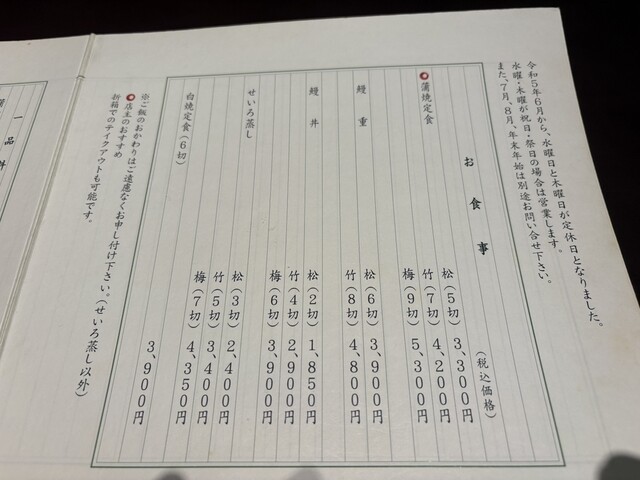 令和5年6月から、水曜日と木曜日が定休日となりました。
水曜・木曜が祝日・祭日の場合は営業します。
また、7月、8月、年末年始は別途お問い合せ下さい。
お食事
(税込価格)
蒲焼定食
松(5切)3,300円
竹(7切)4,200円
梅(9切)5,300円
鰻重
松(6切)3,900円
竹(8切)4,800円
鰻丼
松(2切)1,850円
竹(4切)2,900円
梅(6切)3,900円
せいろ蒸し
松(3切)2,400円
竹(5切)3,400円
梅(7切)4,350円
白焼定食(6切)
3,900円
※ご飯のおかわりはご遠慮なくお申し付け下さい。(せいろ蒸し以外)
店主のおすすめ
折箱でのテイクアウトも可能です。
一品料